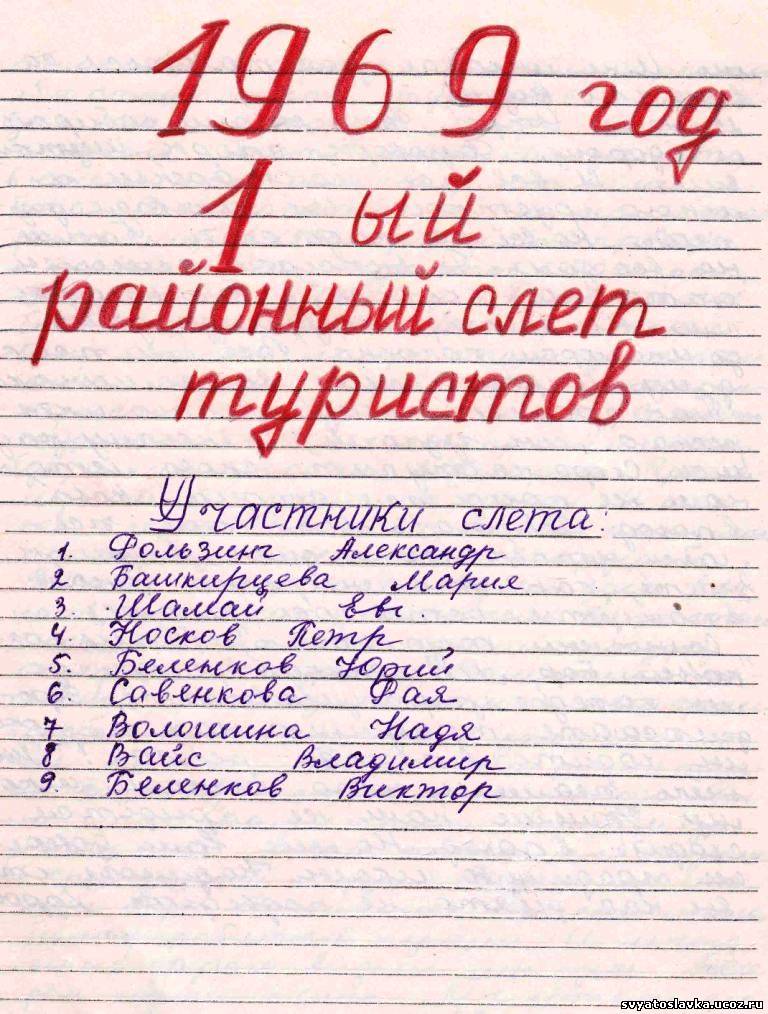 1969 год
1 ый
районный слет
туристов
Участники слета:
1. Фользинг Александр
2 Башкирцева Мария
3. Шамай Евг.
4. Носков Петр
5. Беленков Юрий
6. Савенкова Рая
7 Волошина Надя
8 Вайс Владимир
9. Беленков Виктор
svyatoslavka.ucoz.ru